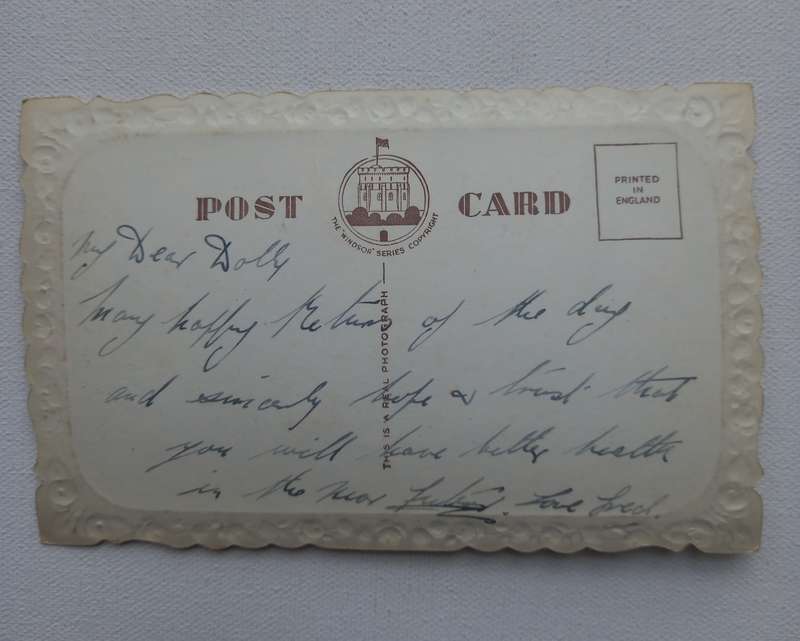 POST CARD
THE "WINDSOR" SERIES COPYRIGHT
PRINTED
IN
ENGLAND
THIS IS A REAL PHOTOGRAPH
My Dear Dolly
Many happy Return of the day
and sincerely hope & trust that
you will have better health
in the near future. Love Fred.